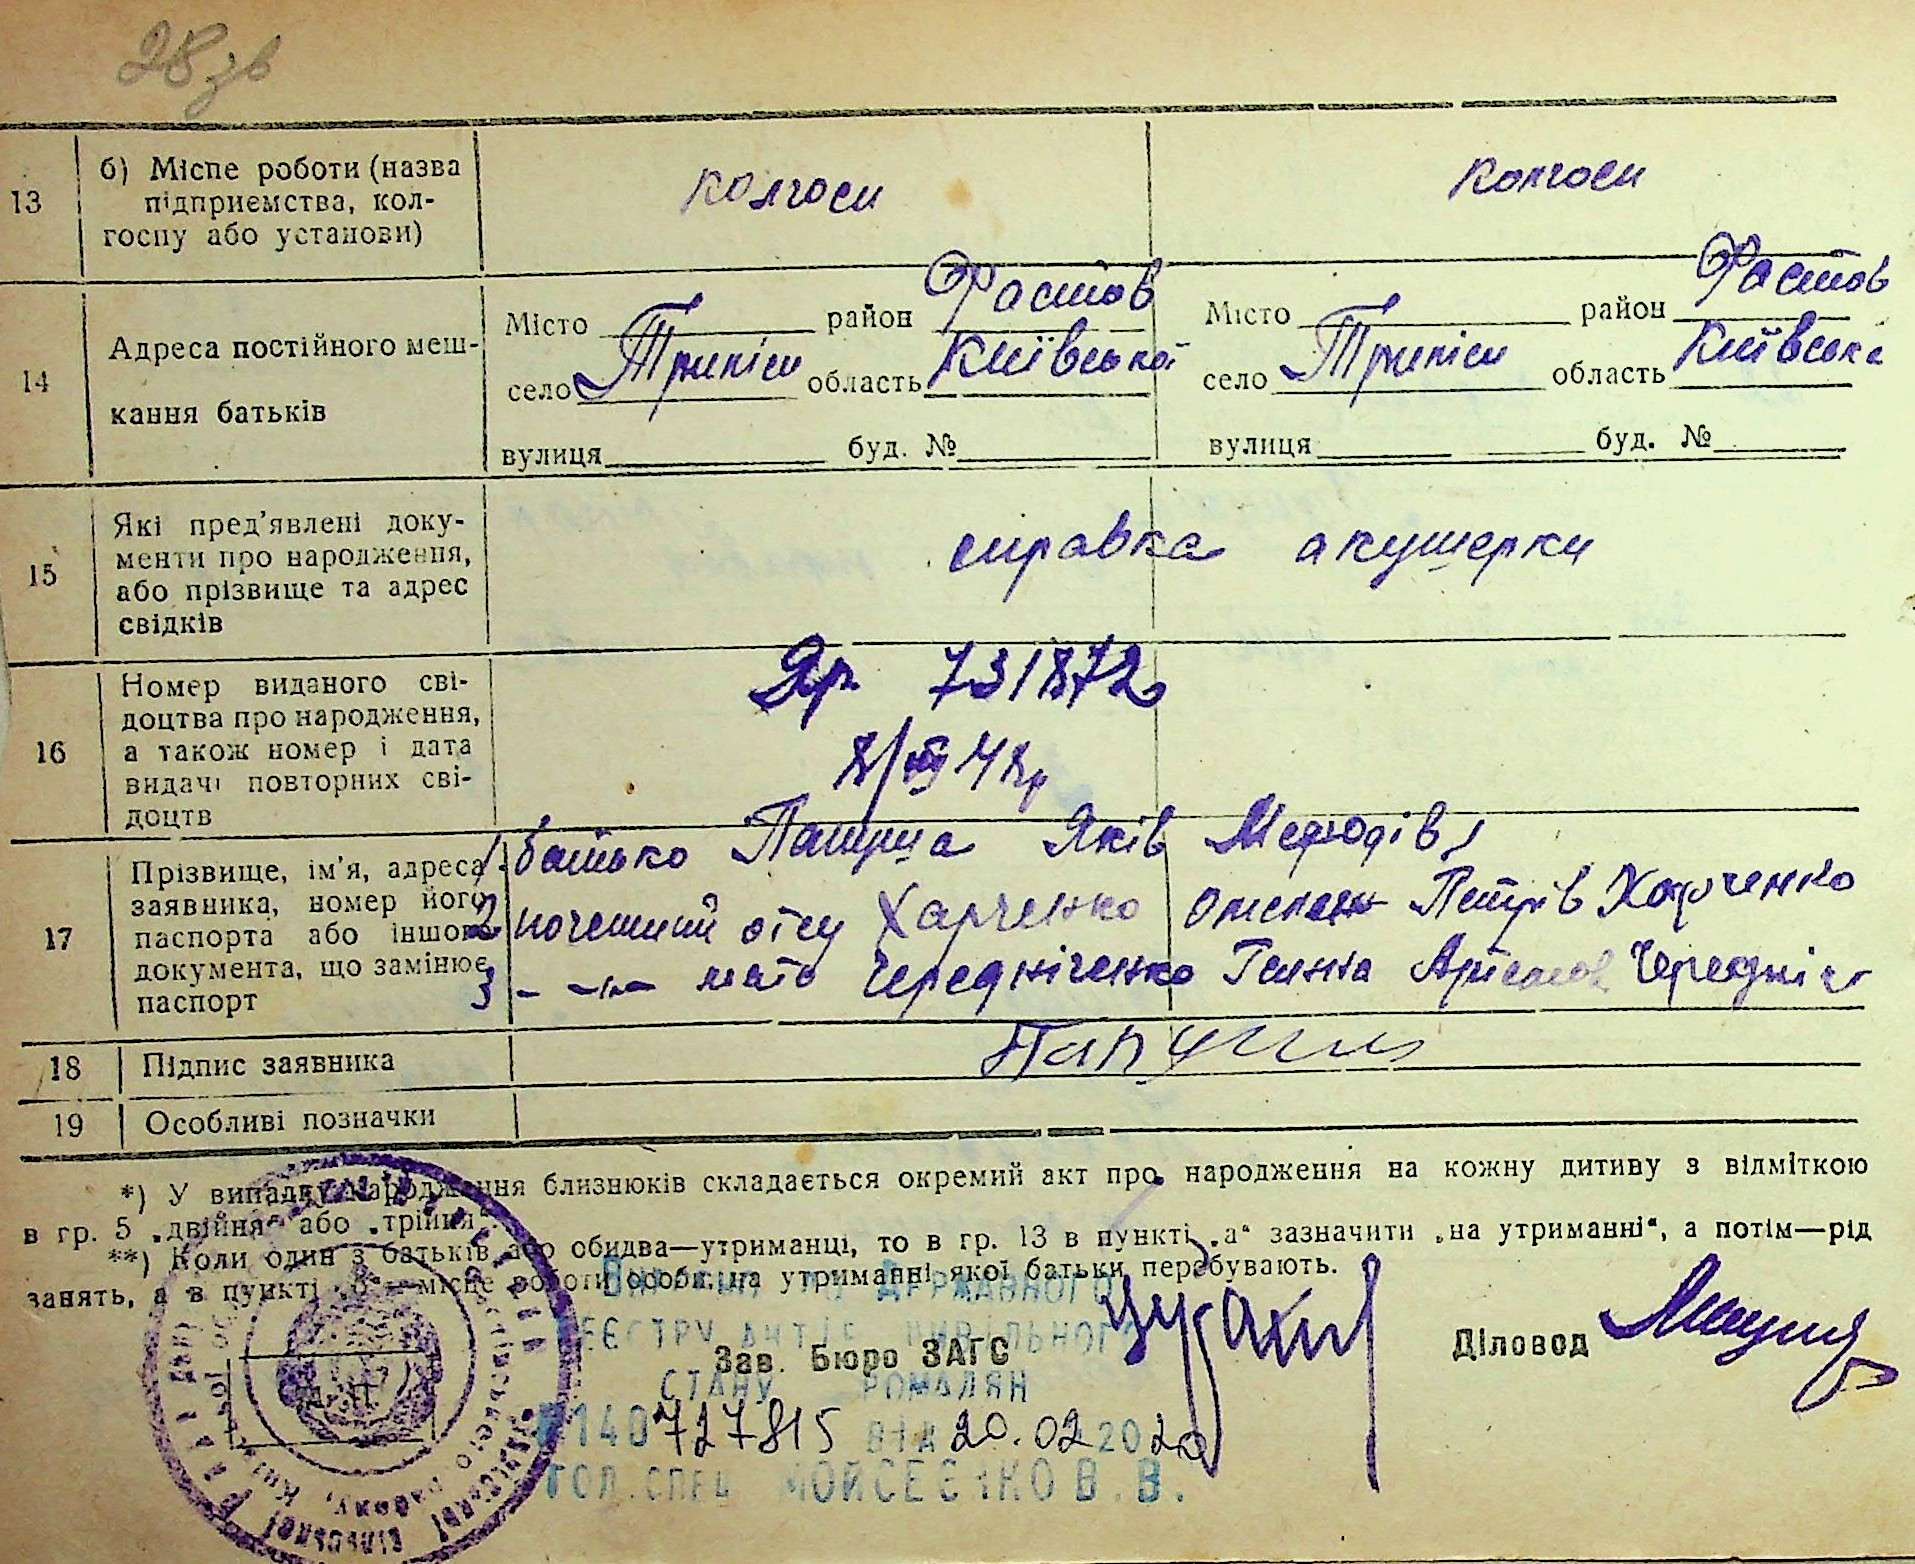 28 зв
13
б) Місце роботи (назва
підприємства, кол-
госпу або установи)
колгосп
колгосп
14
Адреса постійного меш-
кання батьків
Місто район Фастов
село Трипіси область Київської
вулиця буд. №
Місто район Фастов
село Трипіси область Київська
вулиця буд. №
15
Які пред'явлені доку-
менти про народження,
або прізвище та адрес
свідків
справка акушерки
16
Номер виданого сві-
доцтва про народження,
а також номер і дата
видачі повторних сві-
доцтв
731872
17
Прізвище, ім'я, адреса
заявника, номер його
паспорта або іншого
документа, що замінює
паспорт
1. батько Яків Мефодів
2 Харченко Петрів Харченко
3 - -"- мать Чередніченко Ганна
18
Підпис заявника
19
Особливі позначки
*) У випадку народження близнюків складається окремий акт про народження на кожну дитину з відміткою
в гр. 5 „двійня“ або „трійня“.
**) Коли один з батьків або обидва—утриманці, то в гр. 13 в пункті „а“ зазначити „на утриманні“, а потім—рід
занять, а в пункті „б“—місце роботи особи, на утриманні якої батьки перебувають.
Державного
реєстру актів цивільного
стану громадян
Зав. Бюро ЗАГС
Діловод
140727815 від 20.02 2020
гол.спец Мойсеєнко В.В.